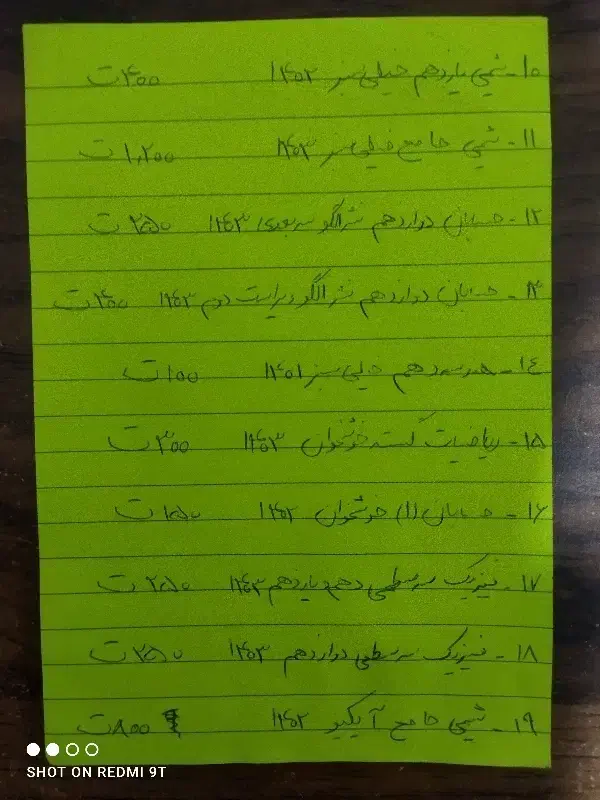 ۱۰- شیمی یازدهم خیلی سبز ۱۴۰۲ ۴۰۰ ت
۱۱- شیمی جامع خیلی سبز ۱۴۰۳ ۱,۲۰۰ ت
۱۲- حسابان دوازدهم نشرالگو سه بعدی ۱۴۰۳ ۲۵۰ ت
۱۳- حسابان دوازدهم نشر الگو ویراست دوم ۱۴۰۳ ۴۰۰ ت
۱۴- هندسه دهم خیلی سبز ۱۴۰۱ ۱۰۰ ت
۱۵- ریاضیات گسسته خوشخوان ۱۴۰۳ ۳۰۰ ت
۱۶- حسابان (۱) خوشخوان ۱۴۰۲ ۱۵۰ ت
۱۷- فیزیک سه سطحی دهم و یازدهم ۱۴۰۳ ۲۵۰ ت
۱۸- فیزیک سه سطحی دوازدهم ۱۴۰۳ ۳۵۰ ت
۱۹- شیمی جامع آیکیو ۱۴۰۲ ۸۰۰ ت
SHOT ON REDMI 9T